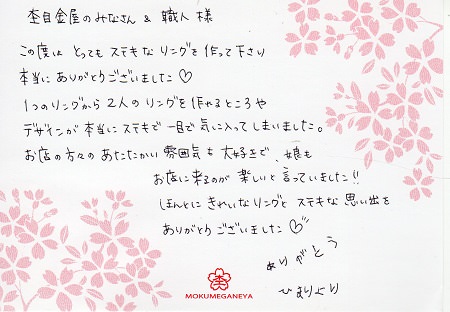 杢目金屋のみなさん & 職人 様
この度は とっても ステキな リングを 作って下さい
本当に ありがとうございました♡
1つのリングから 2人の リングを 作れるところや
デザインが 本当に ステキで 一目で 気に入って しまいました。
お店の 方々の あたたかい 雰囲気も 大好きで、娘も
お店に 来るのが 楽しいと 言っていました!!
ほんとに きれいなリングと ステキな 思い出を
ありがとうございました♡
ありがとう
ひまりより
MOKUMEGANEYA